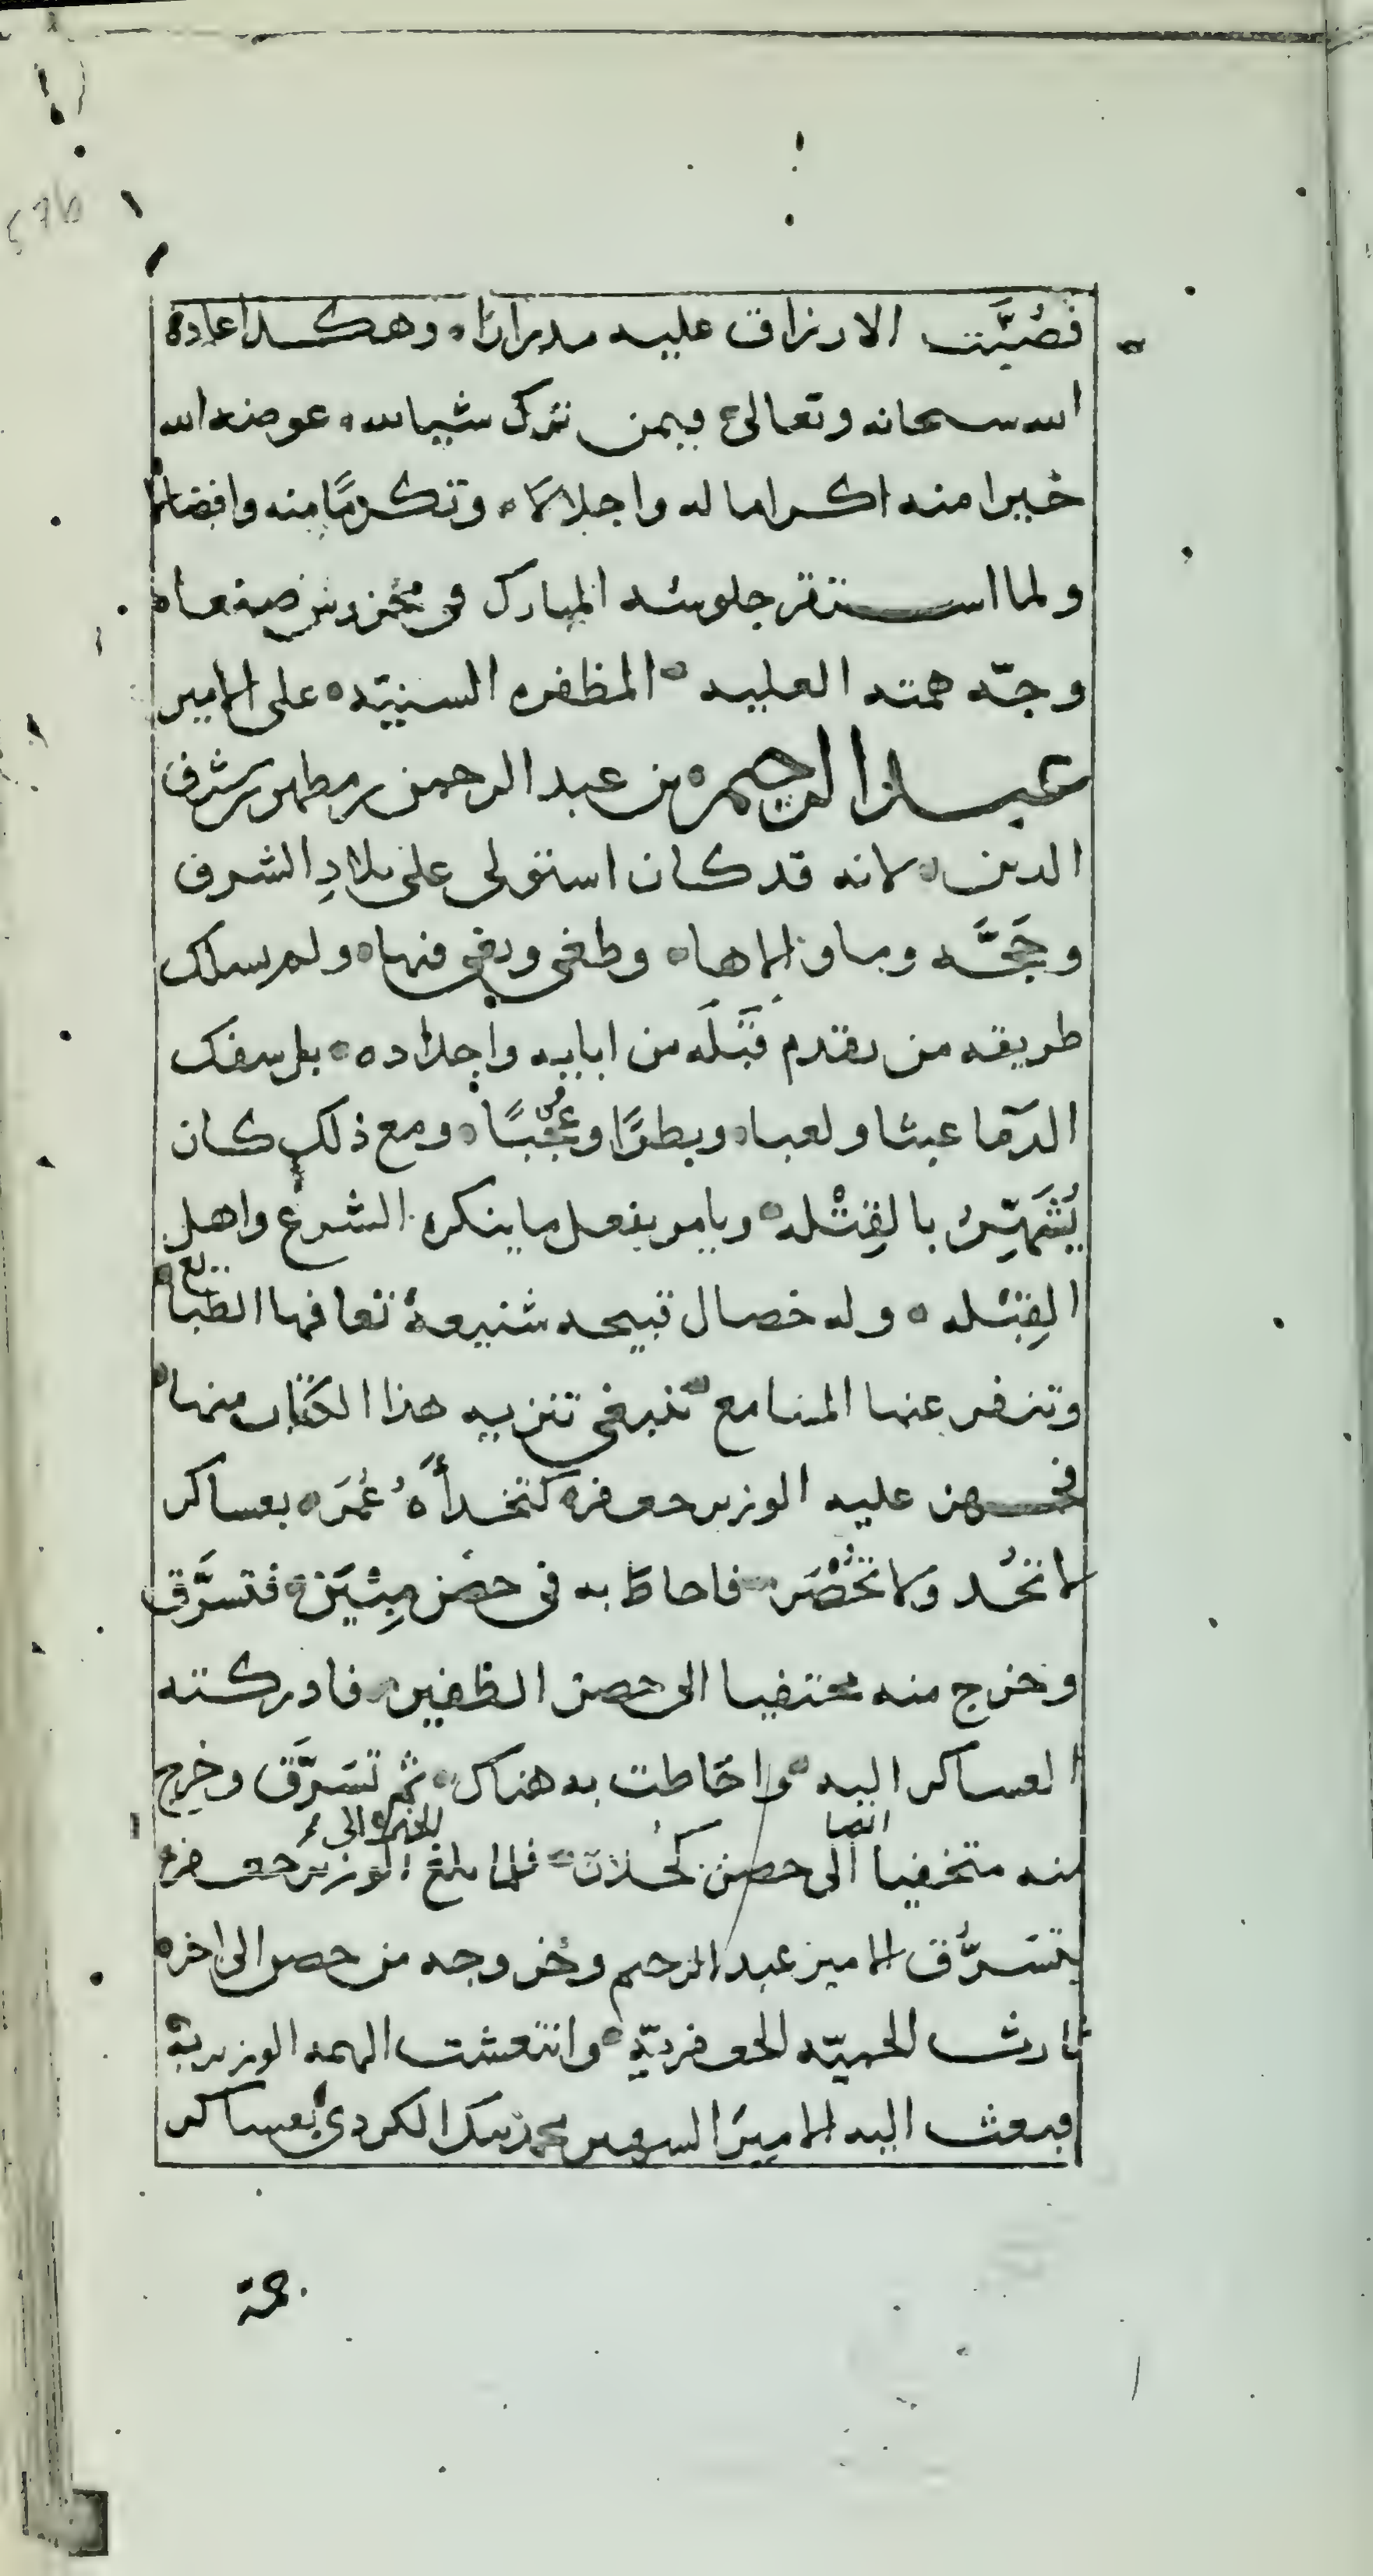 فصُبَّت الارزاق عليه مدرارًا وهكذا عادة
الله سبحانه وتعالى فيمن ترك شيا لله عوضه الله
خيرا منه اكراما له واجلالًا وتكرمًا منه وافضالًا
ولما استقر جلوسه المبارك في محروس صنعاء
وجّه همته العليه المظفره السنيّه على الامير
عبد الرحيم بن عبد الرحمن بن مطهر بن شرف
الدين لانه قد كان استولى على بلادِ الشرف
وحَجَّه وما والاها وطغى وبغى فيها ولم يسلك
طريقه من تقدم قَبْلَه من ابايه واجداده بل سفك
الدّما عبثا ولعبا وبطرًا وعُجْبًا ومع ذلك كان
بالقِبْله ويامر بفعل ما ينكره الشرع واهل
القِبْله وله خصال قبيحه شنيعة تعافها الطباع
وتنفر عنها المسامع ينبغي تنزيه هذا الكتاب منها
فجهز عليه الوزير جعفر كتخداهُ عُمَر بعساكر
لا تحُد ولا تُحْصَر فاحاطَ به في حصن مِبْيَن فتسرَّق
وخرج منه مختفيا الى حصن الظفير فادركته
العساكر اليه واحَاطت به هناك ثم تسَرَّقَ وخرج
منه متخفيا ايضا الى حصن كُحلان فلما بلغ الخبر الى الوزير جعفر
بتسرُّق الامير عبد الرحيم وخروجه من حصن الى اخر
ثارت الحميّه الجعفريّه وانتعشت الهمه الوزيرية
فبعث اليه الاميرَ محمد بيك الكردي بعساكر
جمة